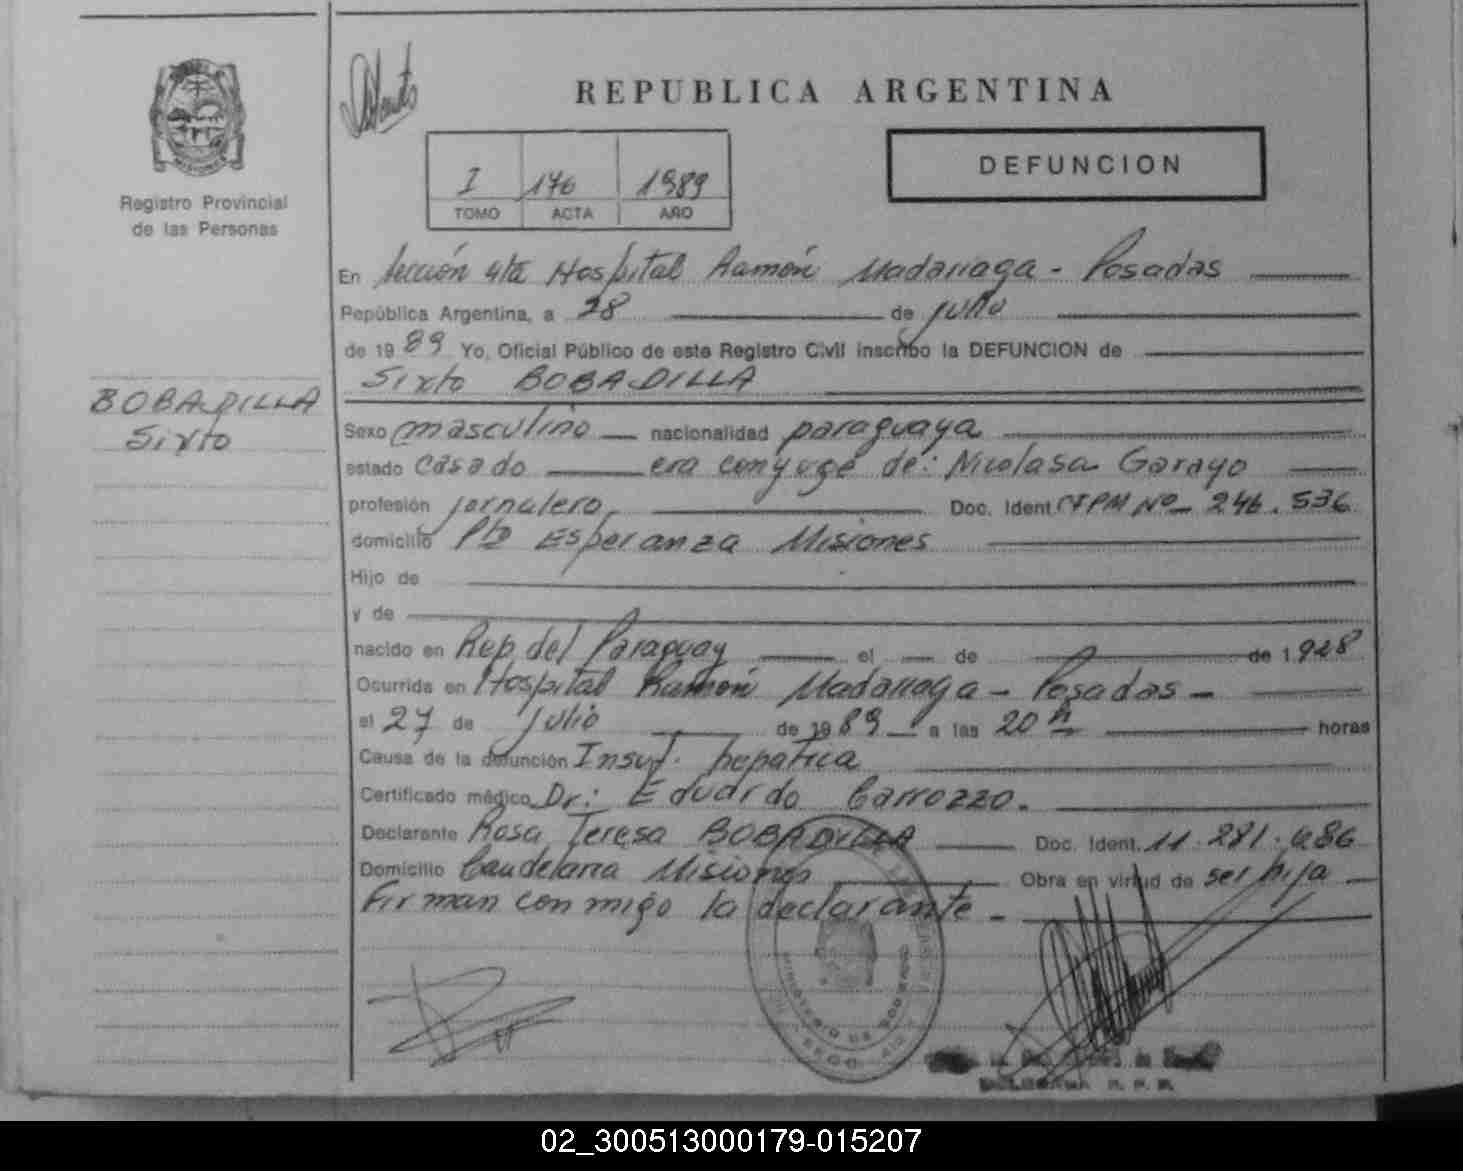 REPUBLICA ARGENTINA
DEFUNCION
I 176 1989
TOMO ACTA AÑO
Registro Provincial
de las Personas
BOBADILLA
Sixto
En Sección 4ta Hospital Ramón Madariaga - Posadas
República Argentina, a 28 de julio
de 1989 Yo, Oficial Público de este Registro Civil inscribo la DEFUNCION de
Sixto BOBADILLA
Sexo masculino nacionalidad paraguaya
estado casado era conyuge de: Nicolasa Garayo
profesión jornalero Doc. Ident. CIPM No 246.536
domicilio Pto Esperanza Misiones
Hijo de
y de
nacido en Rep. del Paraguay el de de 1.928
Ocurrida en Hospital Ramón Madariaga - Posadas -
el 27 de julio de 1989 a las 20 h horas
Causa de la defunción Insuf. hepatica
Certificado médico Dr: Eduardo Carrozzo.
Declarante Rosa Teresa BOBADILLA Doc. Ident. 11.281.686
Domicilio Candelaria Misiones Obra en virtud de ser hija
Firman conmigo la declarante -
MINISTERIO DE GOBIERNO
02_300513000179-015207